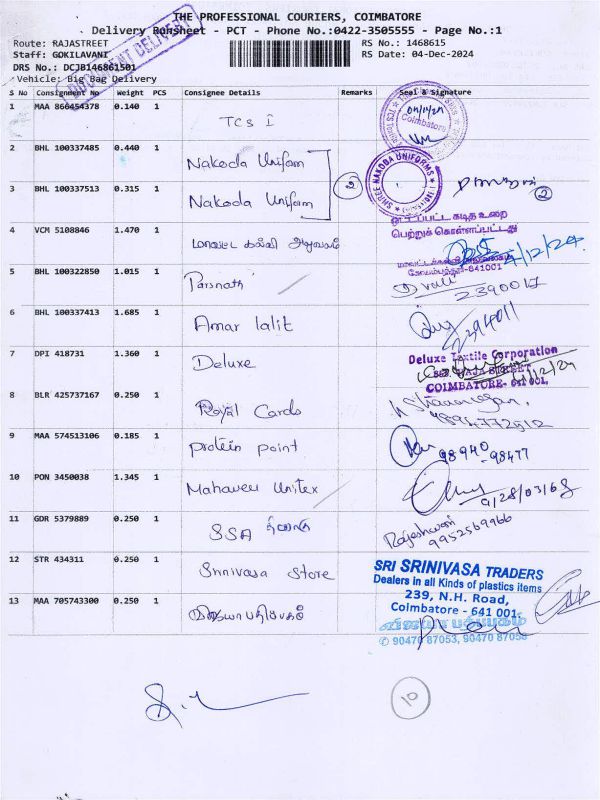 THE PROFESSIONAL COURIERS, COIMBATORE
Delivery Runsheet - PCT - Phone No.:0422-3505555 - Page No.:1
Route: RAJASTREET
RS No.: 1468615
Staff: GOKILAVANI
RS Date: 04-Dec-2024
DRS No.: DCJB146861501
DOCUMENT DELIVERY
Vehicle: Big Bag Delivery
S No Consignment No Weight PCS Consignee Details Remarks Seal & Signature
1 MAA 860454378 0.140 1 TCS I
Coimbatore
2 BHL 100337485 0.440 1 Nakoda Uniform
SHREE NAKODA UNIFORMS
3 BHL 100337513 0.315 1 Nakoda Uniform 2
2
ஒப்பட்ட கடித உறை
பெற்றுக் கொள்ளப்பட்டது
4 VCM 5108846 1.470 1
கோயம்புத்தூர்-641001
5 BHL 100322850 1.015 1 Parsnath
2390017
6 BHL 100337413 1.685 1 Amar lalit
2294011
7 DPI 418731 1.360 1 Deluxe
Deluxe Textile Corporation
RAJA STREET
COIMBATORE- 641 001.
8 BLR 425737167 0.250 1 Royal Cards
9894772512
9 MAA 574513106 0.185 1 Protein point
98940-98477
10 PON 3450038 1.345 1 Mahaveer Unitex
11 GDR 5379889 0.250 1 SSA
Rajeshwari
9952569966
12 STR 434311 0.250 1 Srinivasa Store
SRI SRINIVASA TRADERS
Dealers in all Kinds of plastics items
239, N.H. Road,
Coimbatore - 641 001.
13 MAA 705743300 0.250 1 விஜயா பதிப்பகம்
விஜயா பதிப்பகம்
✆ 90470 87053, 90470 87058
10